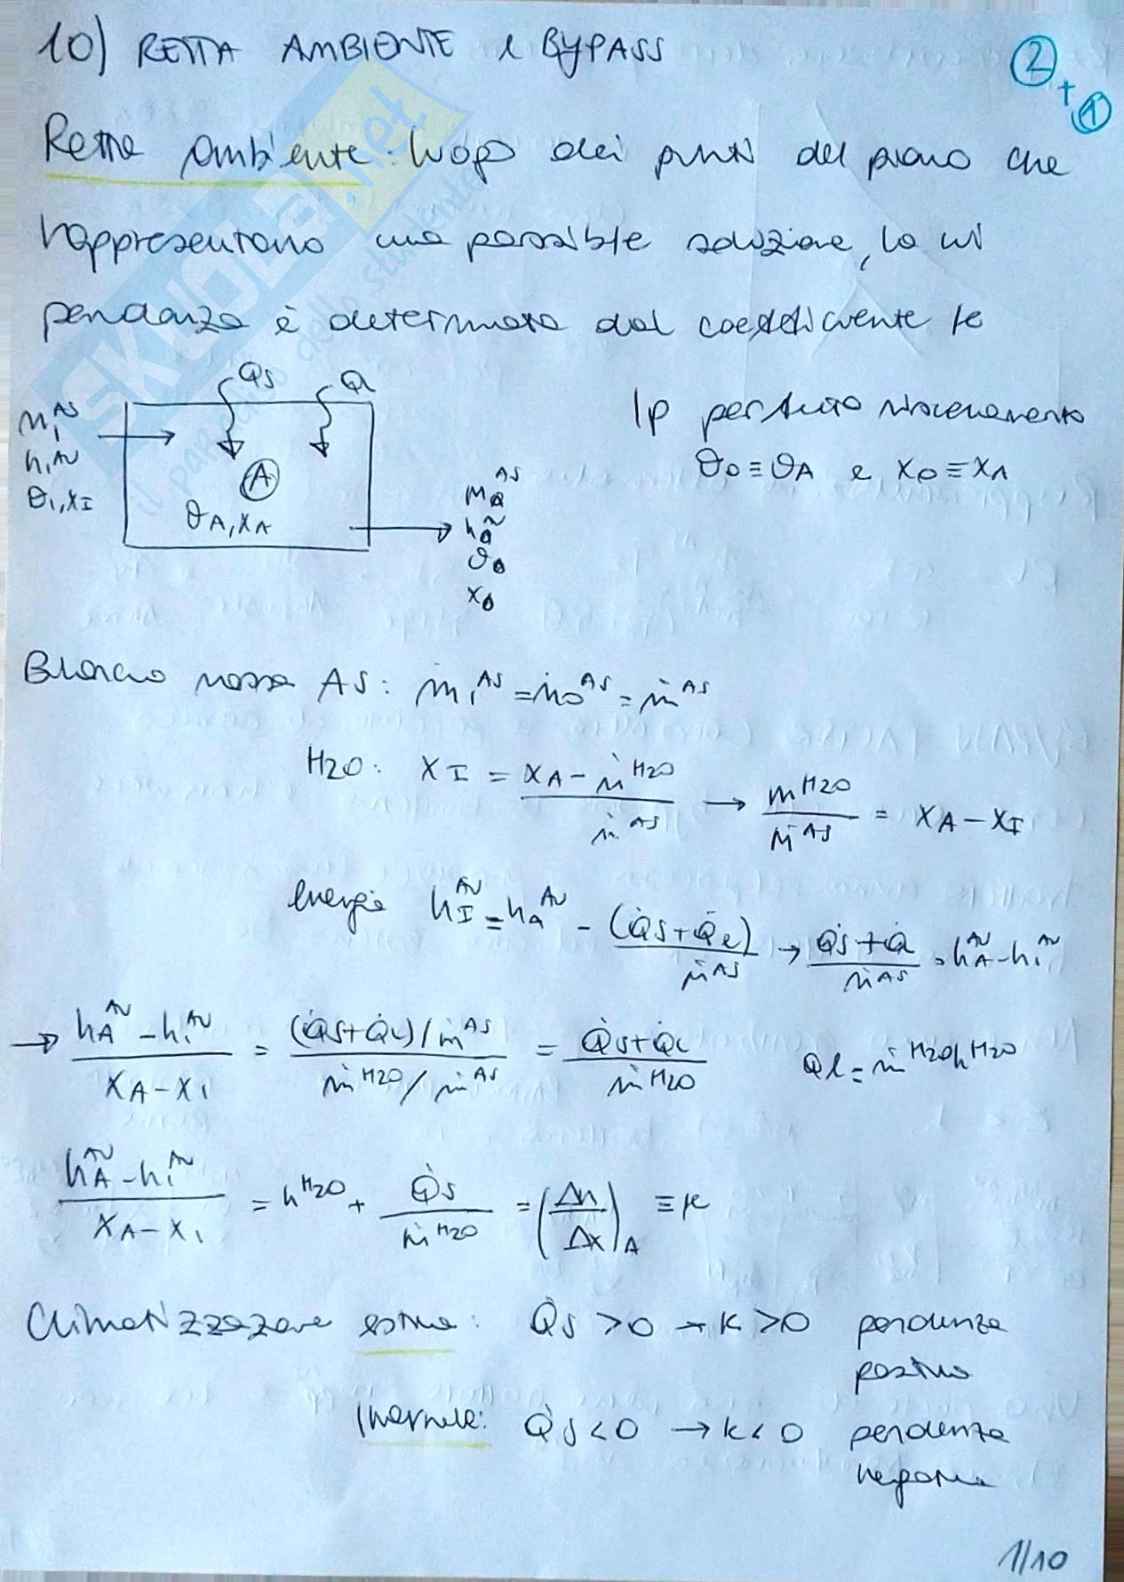 10) RETTA AMBIENTE e BYPASS
2 + 1
Retta ambiente: luogo dei punti del piano che
rappresentano una possibile soluzione, la cui
pendenza è determinata dal coefficiente k
Qs Ql
ṁ₁^AS
h₁^AU
θ₁, x_I
A
θA, xA
ṁ_0^AS
h_0^AU
θ_0
x_0
Ip perfetto miscelamento
θ0 ≡ θA e x0 ≡ xA
Bilancio massa AS: ṁ₁^AS = ṁ0^AS = ṁ^AS
H2O: x_I = xA - ṁ^H2O / ṁ^AS → m^H2O / ṁ^AS = xA - x_I
Energia h_I^AU = hA^AU - (Q̇s + Q̇l) / ṁ^AS → Q̇s + Q̇l / ṁ^AS = hA^AU - h₁^AU
→ hA^AU - h₁^AU / xA - x₁ = (Q̇s + Q̇l) / ṁ^AS / ṁ^H2O / ṁ^AS = Q̇s + Q̇l / ṁ^H2O Ql = ṁ^H2O h^H2O
hA^AU - h₁^AU / xA - x₁ = h^H2O + Q̇s / ṁ^H2O = (Δh / Δx)A ≡ k
Climatizzazione estiva: Q̇s > 0 → k > 0 pendenza
positiva
Invernale: Q̇s < 0 → k < 0 pendenza
negativa
1/10
SKUOLA.net
il paradiso dello studente